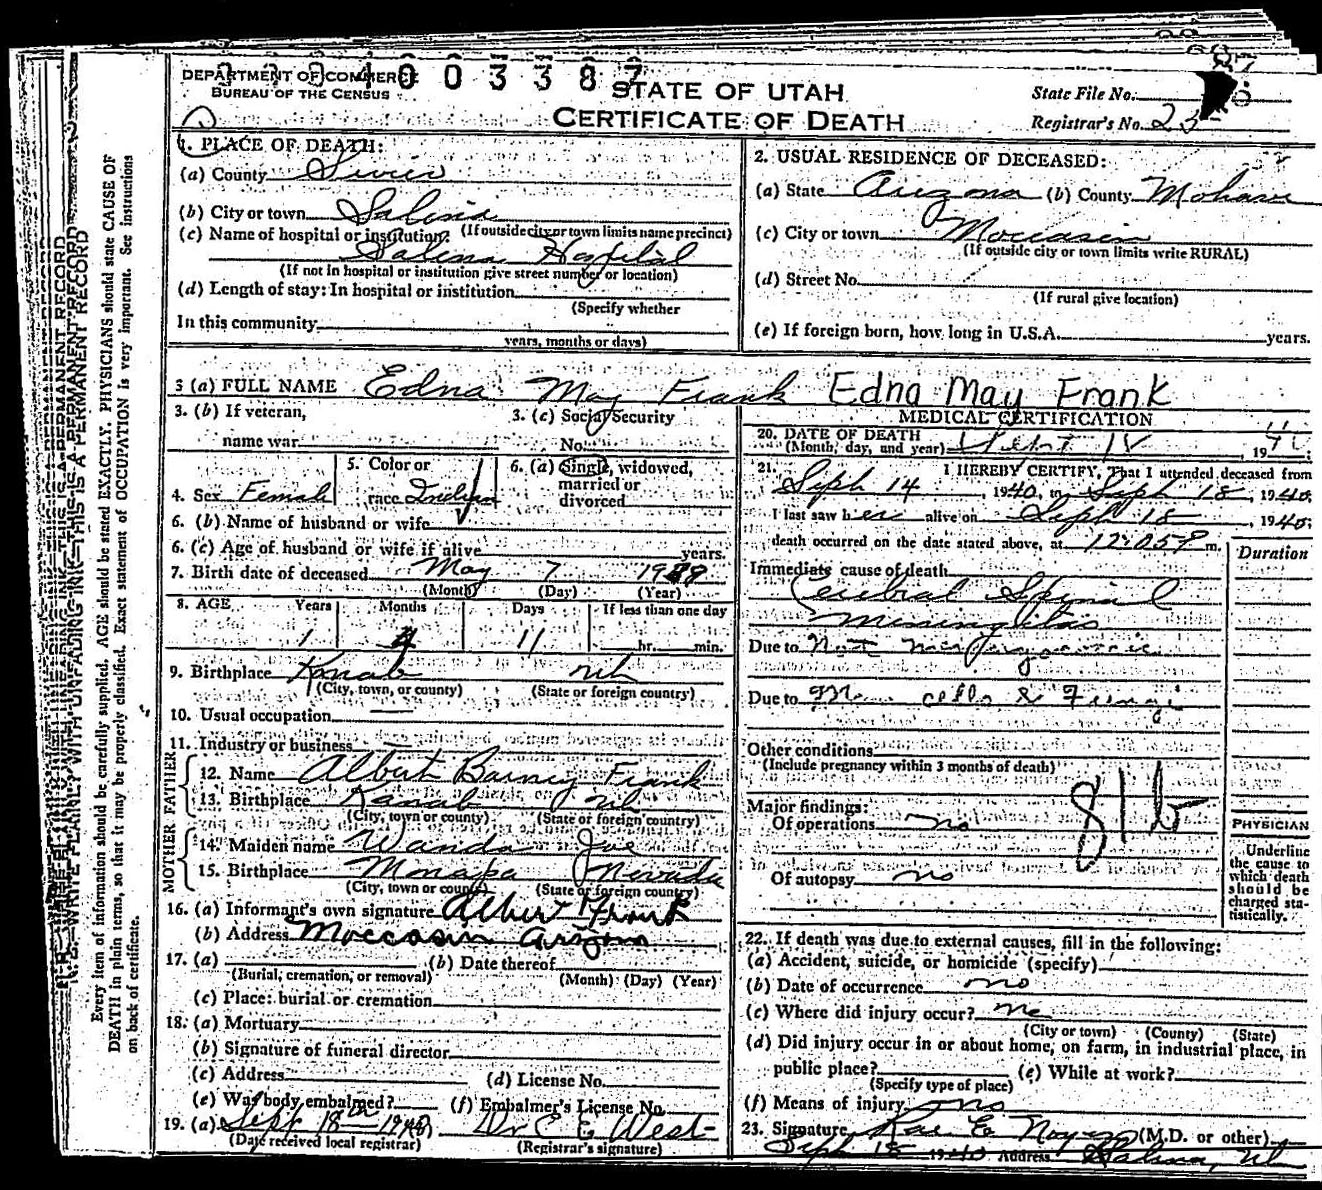 DEPARTMENT OF COMMERCE
BUREAU OF THE CENSUS
STATE OF UTAH
CERTIFICATE OF DEATH
State File No.
Registrar's No. 23
1. PLACE OF DEATH:
(a) County Sevier
(b) City or town Salina
(If outside city or town limits name precinct)
(c) Name of hospital or institution:
Salina Hospital
(If not in hospital or institution give street number or location)
(d) Length of stay: In hospital or institution
(Specify whether
In this community
years, months or days)
2. USUAL RESIDENCE OF DECEASED:
(a) State Arizona (b) County Mohave
(c) City or town Moccasin
(If outside city or town limits write RURAL)
(d) Street No.
(If rural give location)
(e) If foreign born, how long in U.S.A. years.
3 (a) FULL NAME Edna May Frank Edna May Frank
3. (b) If veteran,
name war
3. (c) Social Security
No.
4. Sex Female
5. Color or
race Indian
6. (a) Single, widowed,
married or
divorced
6. (b) Name of husband or wife
6. (c) Age of husband or wife if alive years.
7. Birth date of deceased May 7 1939
(Month) (Day) (Year)
8. AGE Years Months Days If less than one day
1 4 11 hr. min.
9. Birthplace Kanab Ut
(City, town, or county) (State or foreign country)
10. Usual occupation
11. Industry or business
FATHER
12. Name Albert Barney Frank
13. Birthplace Kanab Ut
(City, town or county) (State or foreign country)
MOTHER
14. Maiden name Wanda Joe
15. Birthplace Moapa Nevada
(City, town or county) (State or foreign country)
16. (a) Informant's own signature Albert Frank
(b) Address Moccasin Arizona
17. (a) (b) Date thereof
(Burial, cremation, or removal) (Month) (Day) (Year)
(c) Place: burial or cremation
18. (a) Mortuary
(b) Signature of funeral director
(c) Address (d) License No.
(e) Was body embalmed? (f) Embalmer's License No.
19. (a) Sept 18th 1940 Dr C E West
(Date received local registrar) (Registrar's signature)
MEDICAL CERTIFICATION
20. DATE OF DEATH
(Month, day, and year) Sept 18, 1940;
21. I HEREBY CERTIFY, That I attended deceased from
Seph 14, 1940, to Seph 18, 1940;
I last saw her alive on Seph 18, 1940;
death occurred on the date stated above, at 12:05 P m.
Duration
Immediate cause of death
Cerebral Spinal
Meningitas
Due to Not
Due to cells & Fungi
Other conditions
(Include pregnancy within 3 months of death)
Major findings:
Of operations no
81b
Of autopsy no
PHYSICIAN
Underline
the cause to
which death
should be
charged sta-
tistically.
22. If death was due to external causes, fill in the following:
(a) Accident, suicide, or homicide (specify)
(b) Date of occurrence no
(c) Where did injury occur? no
(City or town) (County) (State)
(d) Did injury occur in or about home, on farm, in industrial place, in
public place? (e) While at work?
(Specify type of place)
(f) Means of injury no
23. Signature Rae E Noyes (M.D. or other)
Seph 18 1940 Address Salina, Ut
N. B.—WRITE PLAINLY WITH UNFADING INK—THIS IS A PERMANENT RECORD
Every item of information should be carefully supplied. AGE should be stated EXACTLY. PHYSICIANS should state CAUSE OF
DEATH in plain terms, so that it may be properly classified. Exact statement of OCCUPATION is very important. See instructions
on back of certificate.